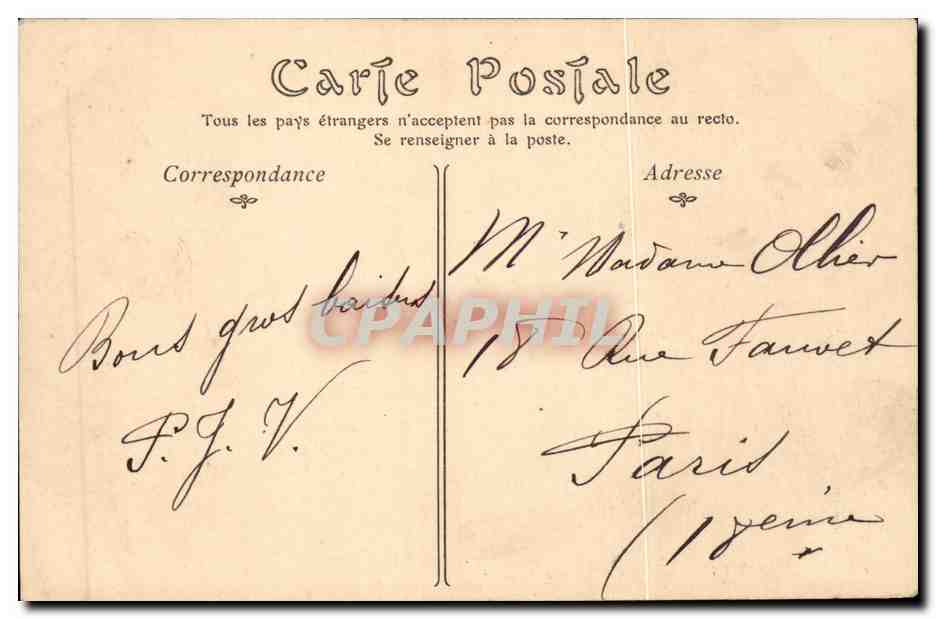 Carte Postale
Tous les pays étrangers n'acceptent pas la correspondance au recto.
Se renseigner à la poste.
Correspondance
Bons gros baisers
P. J. V.
Adresse
Mr Madame Ollier
18 Rue Fauvet
Paris
(18eme
CPAPHIL